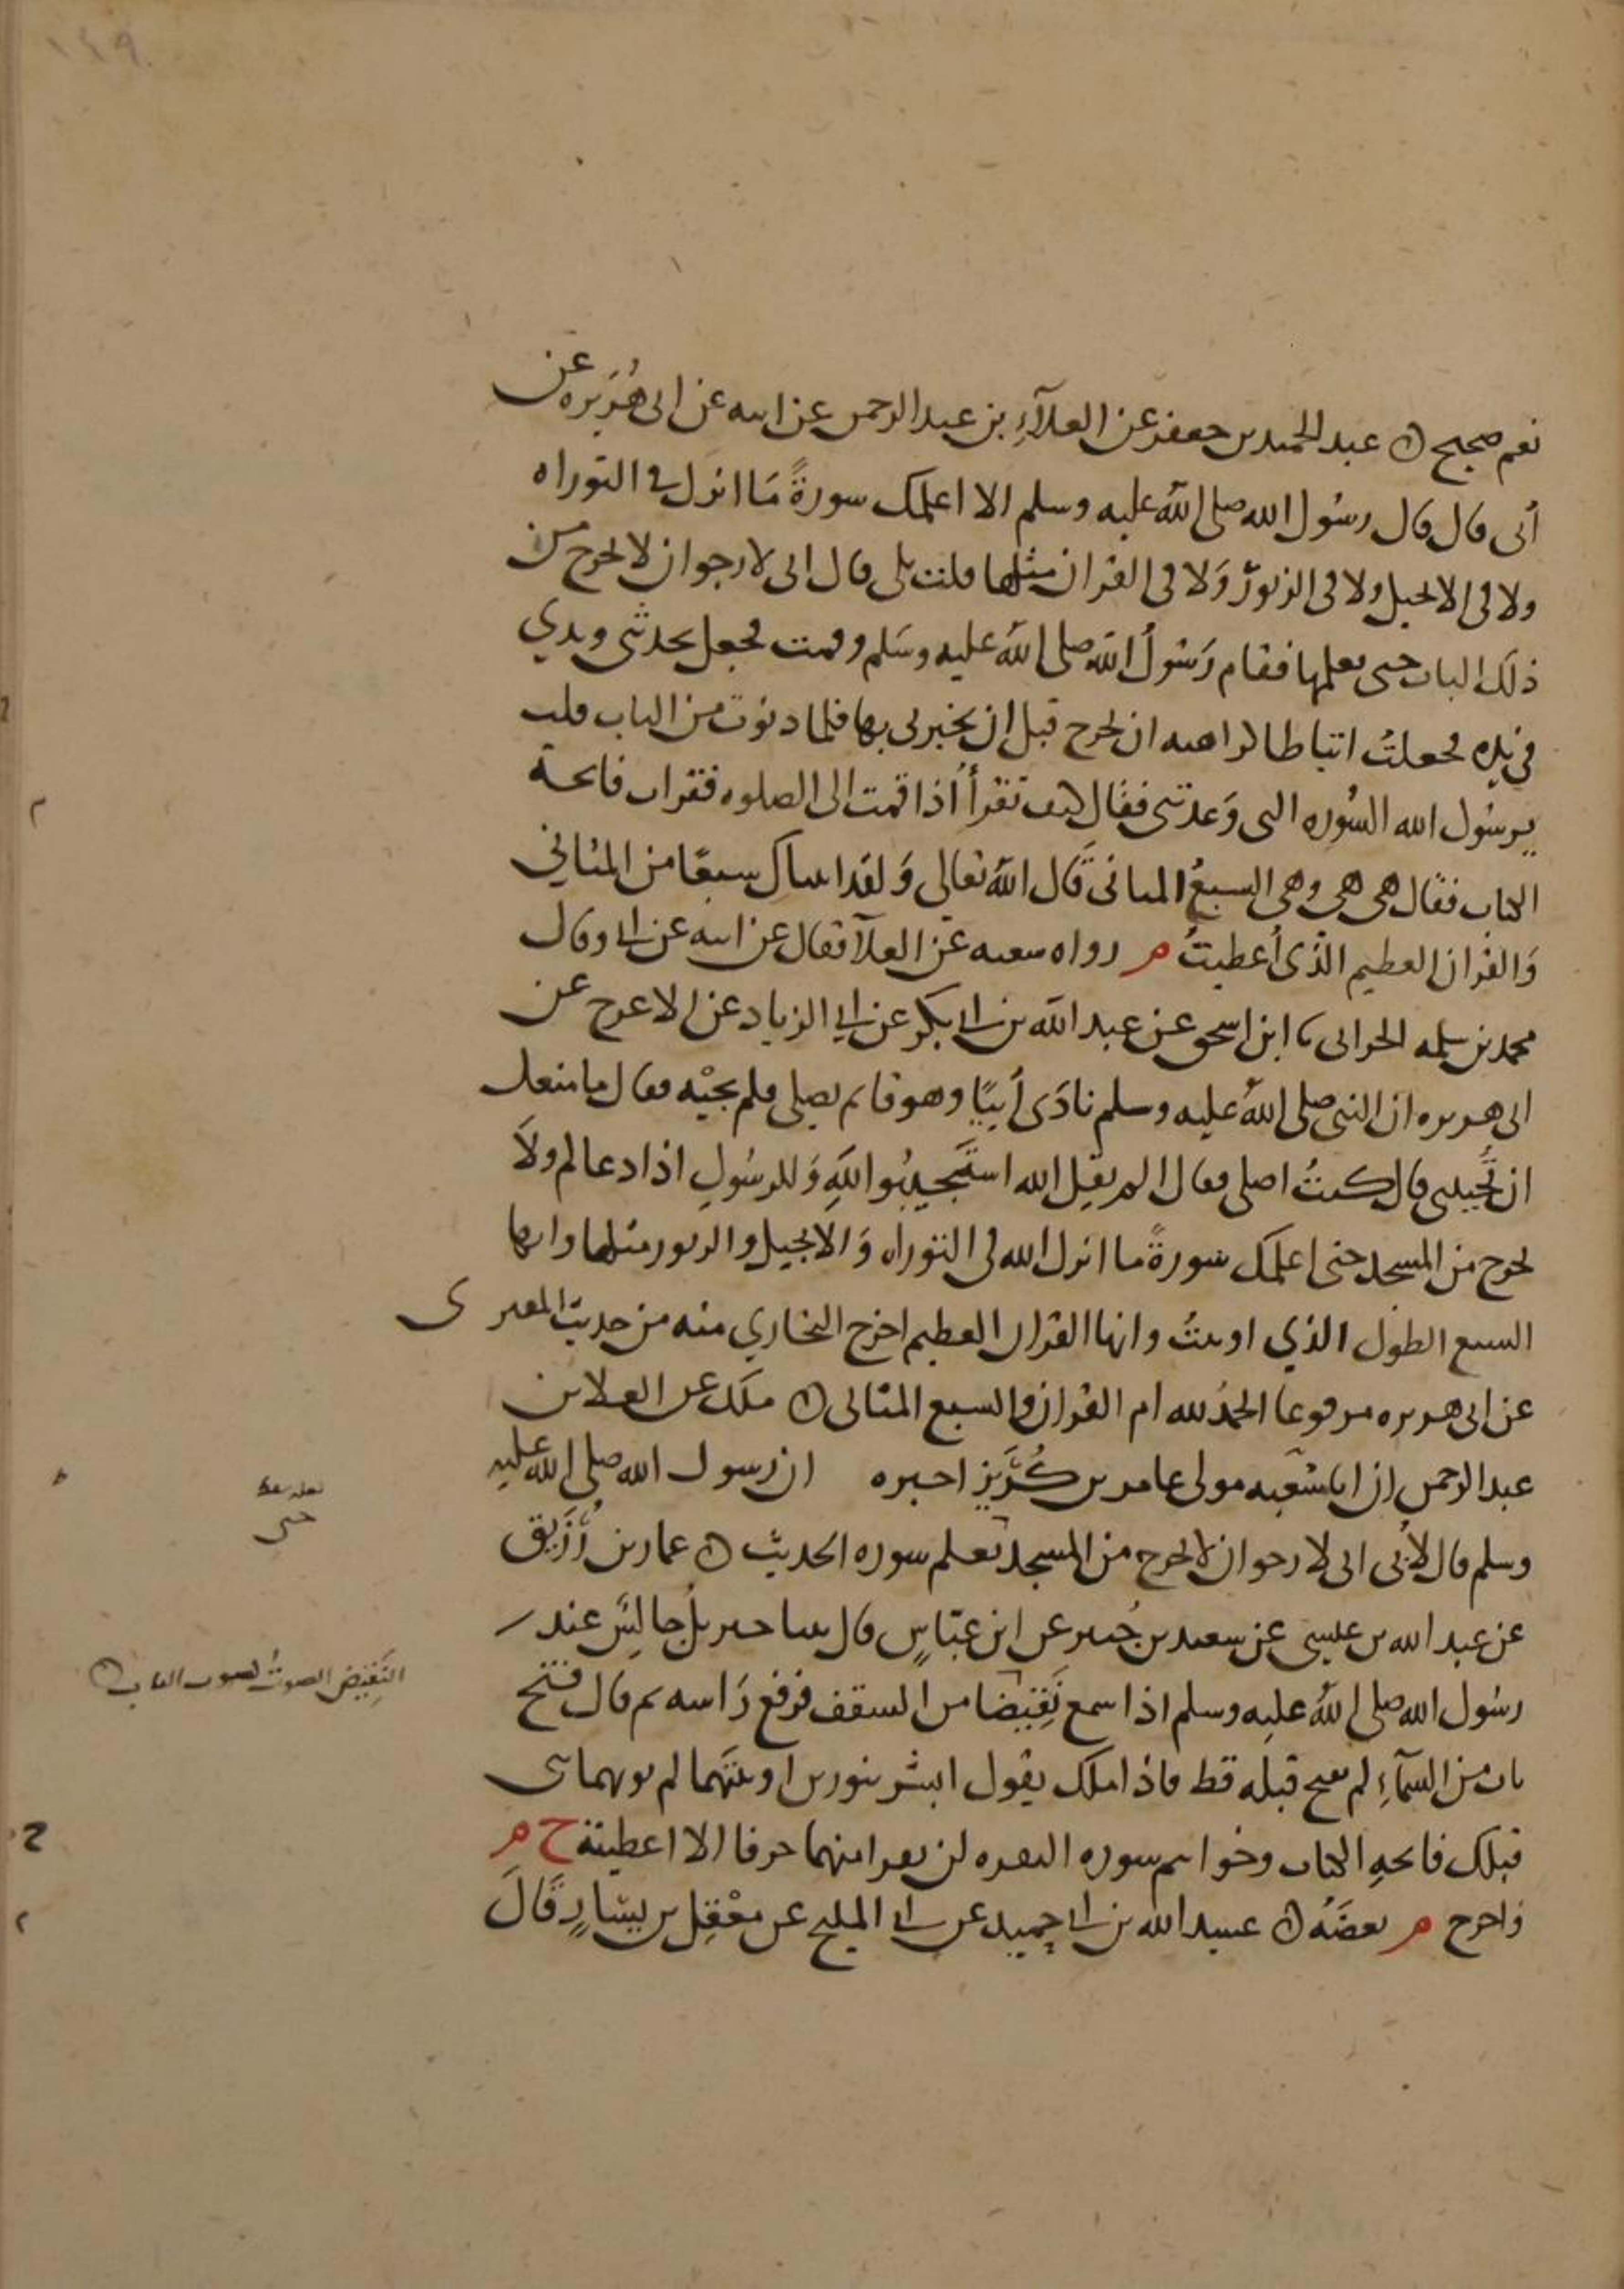 ١٤٩
نعم صحيح ن عبد الحميد بن جعفر عن العلآءِ بن عبد الرحمن عن ابيه عن ابى هُرَيره عن
أبى قال قال رسُول الله صلى الله عليه وسلم الا اعلمك سورةً مَا انزل في التوراه
ولا فى الانجيل ولا فى الزبور وَلا فى القران مثلها قلت بلى قال انى لارجوا ان لا تخرج من
ذلك الباب حتى تعلمها فقام رَسُولُ الله صلى الله عليه وسَلم وقمت فجعل يحدثنى ويدي
في يده فجعلتُ اتباطا كراهيه ان يخرج قبل ان يخبرنى بها فلما دنوت من الباب قلت
يرسُول الله السُوره التى وَعدتنى فقال كيف تقرأ اذا قمت الى الصلوه فقرات فاتحة
الكتاب فقال هى هى وهى السبعُ المثانى قال الله تعالى وَلقد اتيناك سبعًا من المثاني
وَالقران العظيم الذى أعطيتُ م رواه شعبه عن العلآ فقال عن ابيه عن ابى وقال
محمد بن سلمه الحرانى نا ابن اسحق عن عبد الله بن ابى بكر عن ابي الزناد عن الاعرج عن
ابى هريره ان النبى صلى الله عليه وسلم نادَى أبيًا وهو قائم يصلى فلم يجبْه فقال ما منعك
ان تُجيبنى قال كنتُ اصلى فقال الم يقل الله استَجيبُوا للهِ وَللرسُولِ اذا دعاكم ولاَ
تخرج من المسجد حتى اعلمك سورةً ما انزل الله فى التوراه وَالانجيل والزبور مثلها وانها
السبع الطوَل الذي اوتيتُ وانها القران العظيم اخرج البخاري منه من حديث المقبرى
عن ابى هريره مرفوعا الحمدُ لله ام القران والسبع المثانى ن ملك عن العلا بن
عبد الرحمن ان ابا سَعيد مولى عامر بن كُرَيْز اخبره ان رسول الله صلى الله عليه
وسلم قال لأبى انى لارجوا ان لا تخرج من المسجد تعلم سوره الحديث ن عمار بن رُزَيق
عن عبد الله بن عيسى عن سعيد بن جُبير عن ابن عبّاسٍ قال بينا جبريلُ جالسٌ عند
رسُول الله صلى الله عليه وسلم اذا سمع نَقِيضا من السقف فرفع رَاسه ثم قال فتح
باب من السمآءِ لم يفتح قبله قط فاذا ملك يقول ابشر بنورين اوتيتَهما لم يوتهما نبى
قبلك فاتحهِ الكتاب وخواتيم سوره البقره لن تقرا منهما حرفا الا اعطيته ح م
وَاخرج م بعضَهُ ن عبيد الله بن ابى حميد عن ابى المليح عن مَعْقِل بن يسَارٍ قَالَ
حتى
النَقِيض الصوتُ كصوت الباب ن